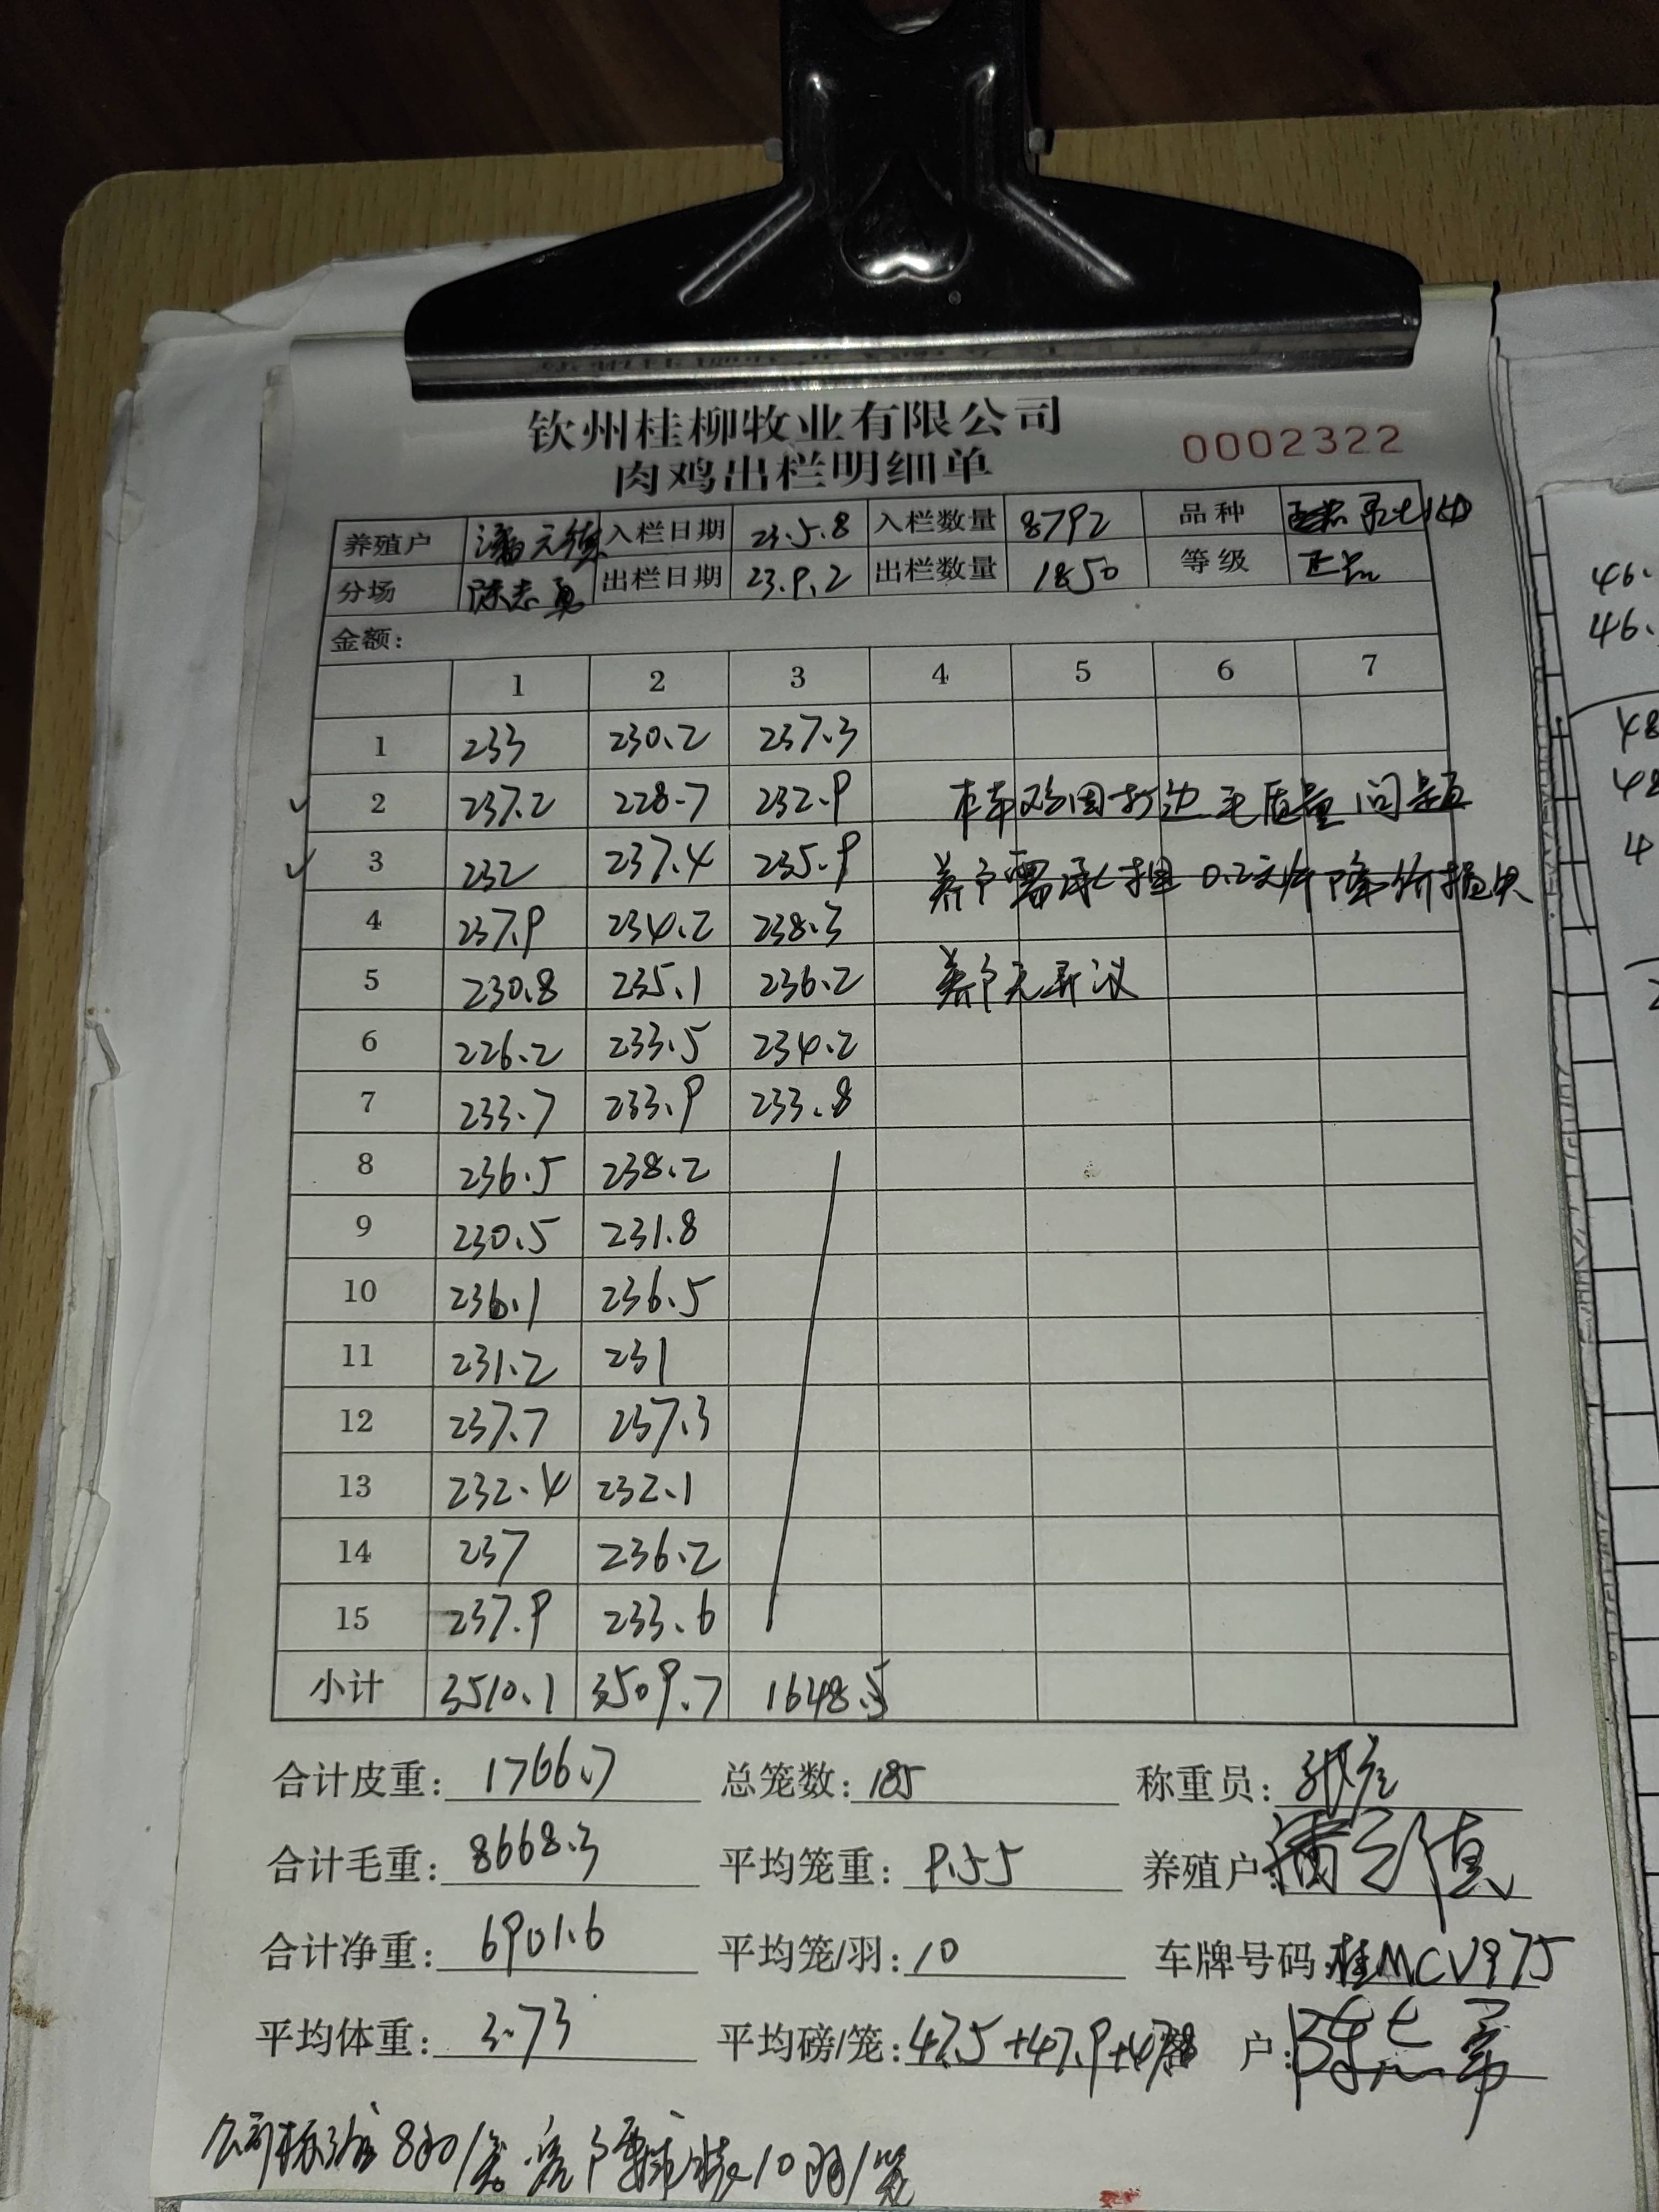 钦州桂柳牧业有限公司
肉鸡出栏明细单
0002322
养殖户 潘元 入栏日期 23.5.8 入栏数量 8792 品种
分场 陈志勇 出栏日期 23.9.2 出栏数量 1850 等级 正品
金额:
1 2 3 4 5 6 7
1 233 230.2 237.3
2 237.2 228.7 232.9 本车鸡因打边毛质量问题
3 232 237.4 235.9 养户需承担 0.2元/斤降价损失
4 237.9 234.2 238.3
5 230.8 235.1 236.2 养户无异议
6 226.2 233.5 234.2
7 233.7 233.9 233.8
8 236.5 238.2
9 230.5 231.8
10 236.1 236.5
11 231.2 231
12 237.7 237.3
13 232.4 232.1
14 237 236.2
15 237.9 233.6
小计 3510.1 3509.7 1648.5
合计皮重: 1766.7 总笼数: 185 称重员:
合计毛重: 8668.3 平均笼重: 9.55 养殖户:
合计净重: 6901.6 平均笼/羽: 10 车牌号码: 桂MCV975
平均体重: 3.73 平均磅/笼: 47.5+47.9+47.8 户:
公司标准 8羽/笼 客户要求装10羽/笼
46.
46.
48
48
4